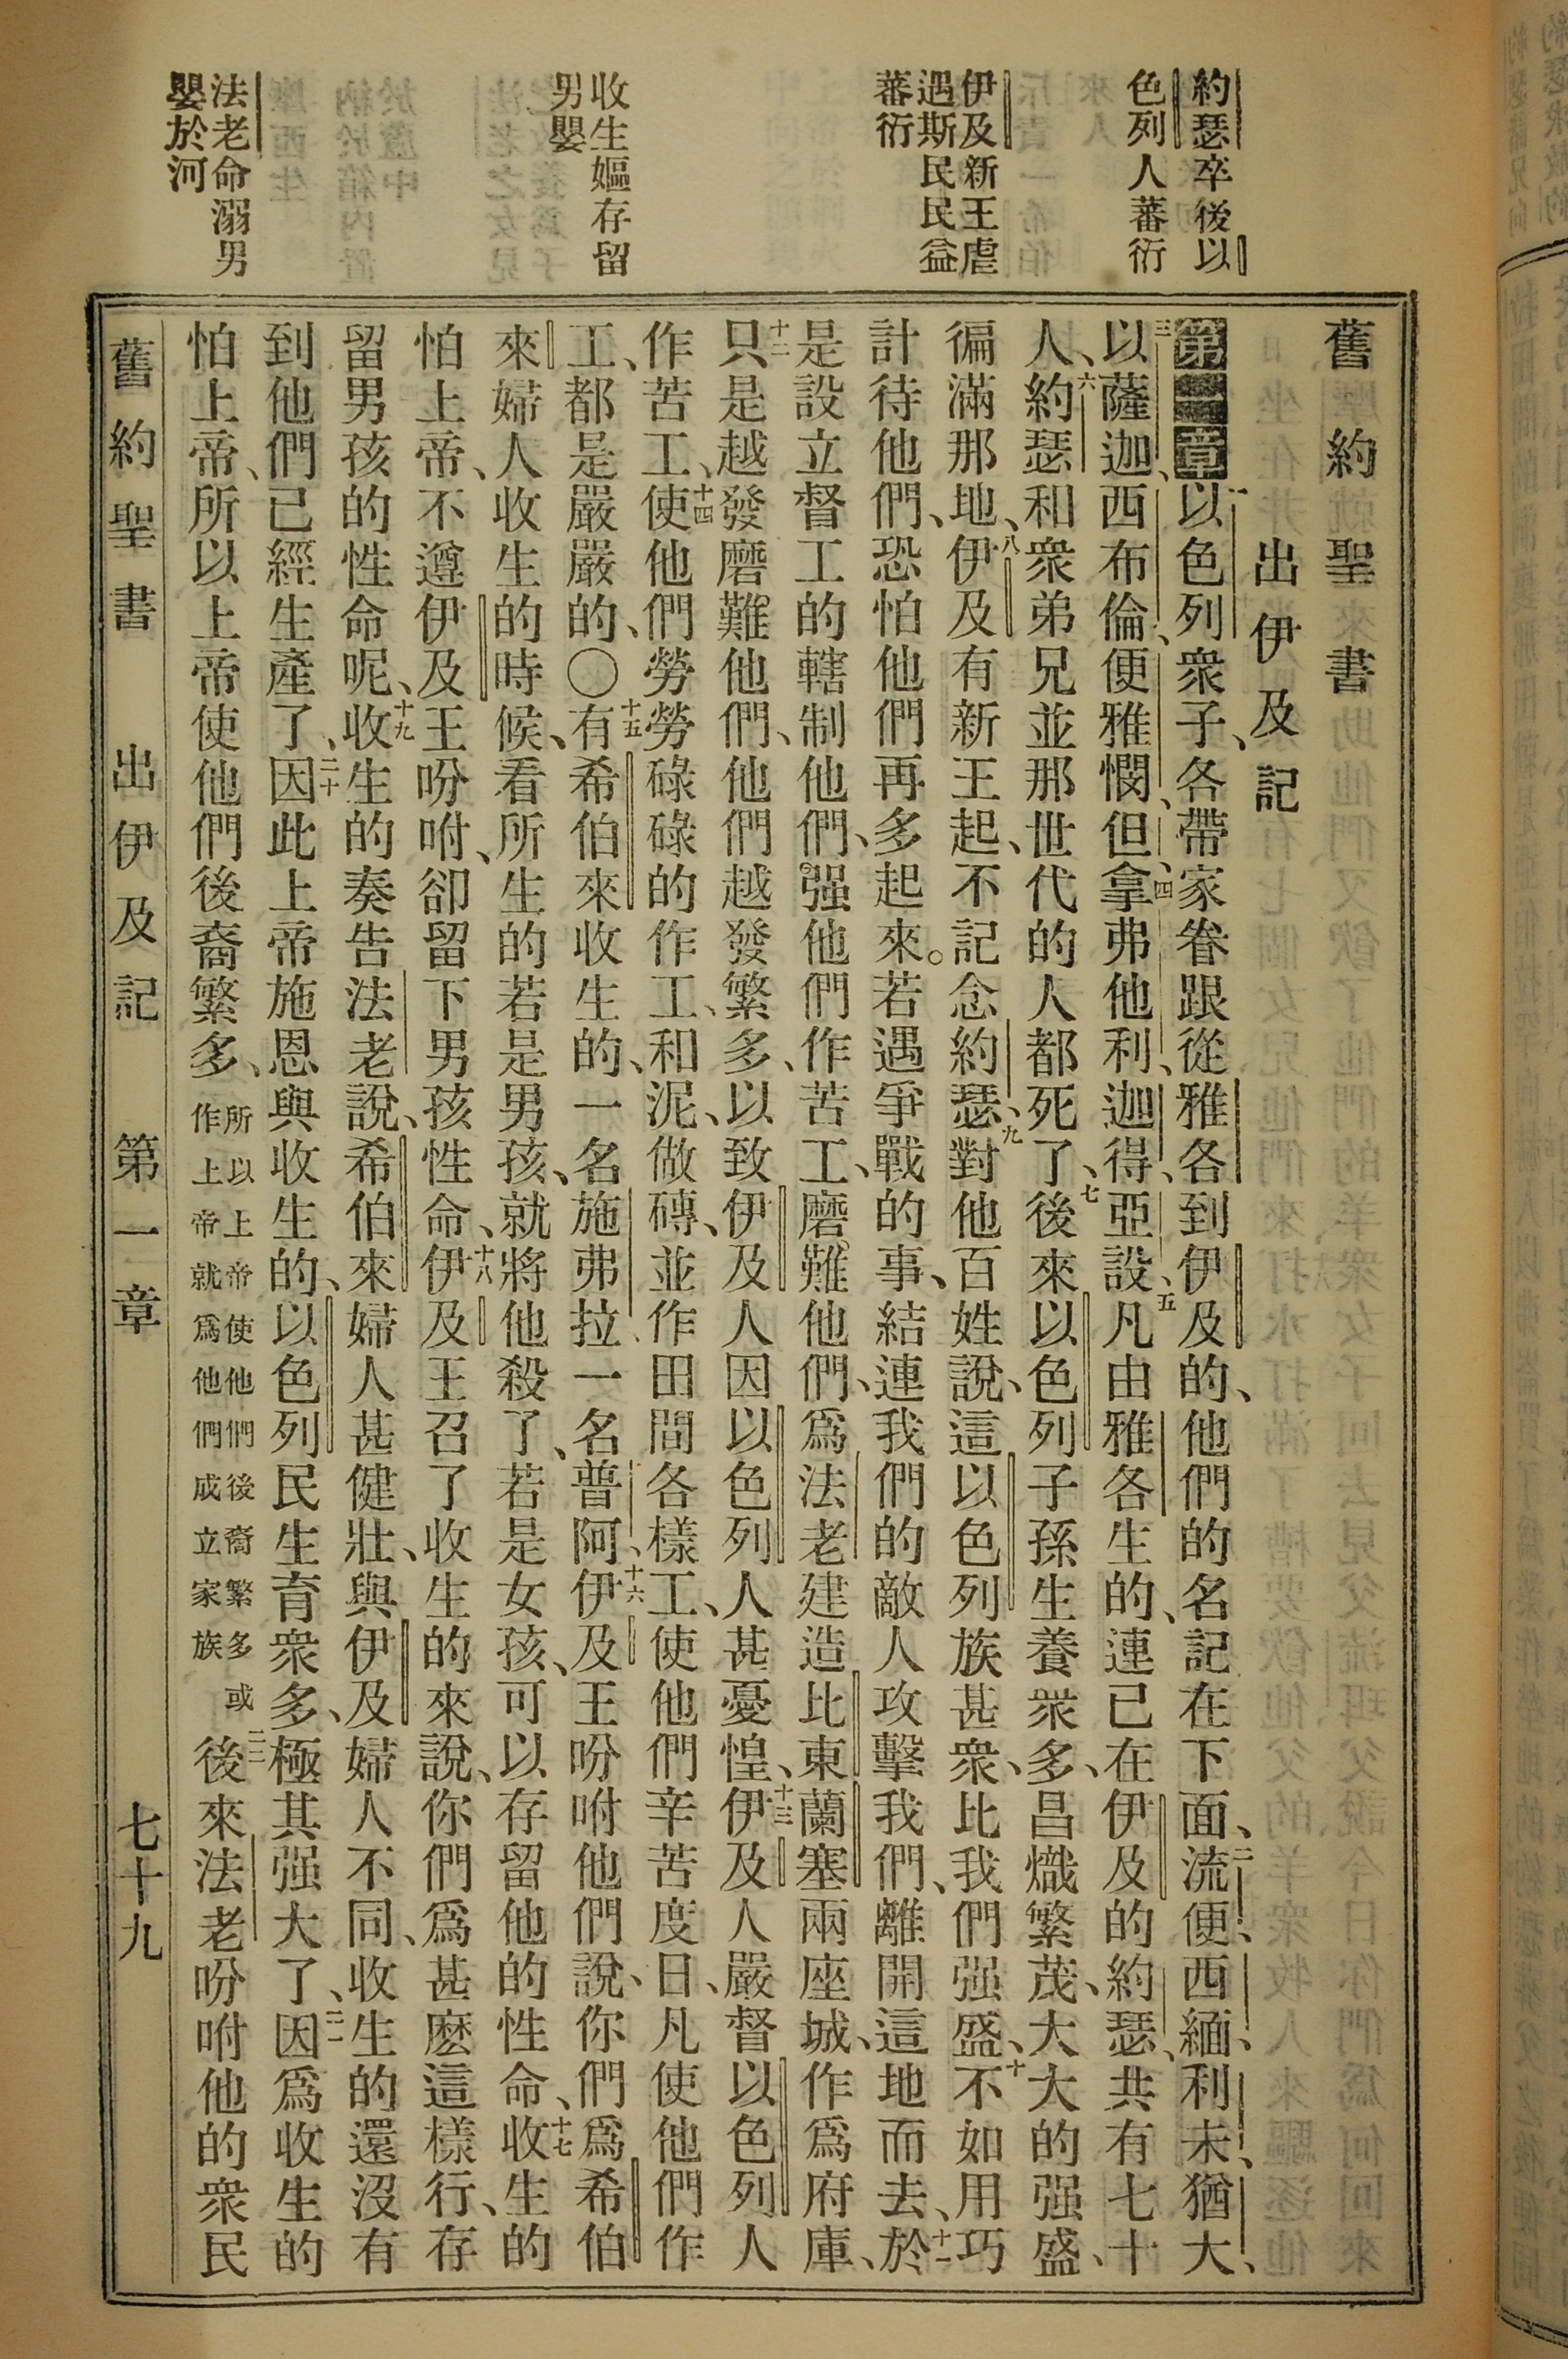 約瑟卒後以
色列人蕃衍
伊及新王虐
遇斯民民益
蕃衍
收生嫗存留
男嬰
法老命溺男
嬰於河
舊約聖書
出伊及記
第一章一以色列衆子、各帶家眷跟從雅各到伊及的、他們的名記在下面、二流便、西緬、利未、猶大、
三以薩迦、西布倫、便雅憫、但、四拿弗他利、迦得、亞設、五凡由雅各生的、連已在伊及的約瑟、共有七十
人、六約瑟和衆弟兄並那世代的人都死了、七後來以色列子孫生養衆多、昌熾繁茂、大大的强盛、
徧滿那地、八伊及有新王起、不記念約瑟、九對他百姓說、這以色列族甚衆、比我們强盛、十不如用巧
計待他們、恐怕他們再多起來。若遇爭戰的事、結連我們的敵人攻擊我們、離開這地而去、十一於
是設立督工的轄制他們、强他們作苦工、磨難他們、爲法老建造比東蘭塞兩座城、作爲府庫、
十二只是越發磨難他們、他們越發繁多、以致伊及人因以色列人甚憂惶、十三伊及人嚴督以色列人
作苦工、十四使他們勞勞碌碌的作工、和泥、做磚、並作田間各樣工、使他們辛苦度日、凡使他們作
工、都是嚴嚴的、○十五有希伯來收生的、一名施弗拉、一名普阿、十六伊及王吩咐他們說、你們爲希伯
來婦人收生的時候、看所生的若是男孩、就將他殺了、若是女孩、可以存留他的性命、十七收生的
怕上帝、不遵伊及王吩咐、卻留下男孩性命、十八伊及王召了收生的來說、你們爲甚麽這樣行、存
留男孩的性命呢、十九收生的奏告法老說、希伯來婦人甚健壯、與伊及婦人不同、收生的還沒有
到他們已經生產了、二十因此上帝施恩與收生的、以色列民生育衆多、極其强大了、二一因爲收生的
怕上帝、所以上帝使他們後裔繁多、所以上帝使他們後裔繁多或作上帝就爲他們成立家族二二後來法老吩咐他的衆民
舊約聖書 出伊及記 第一章 七十九